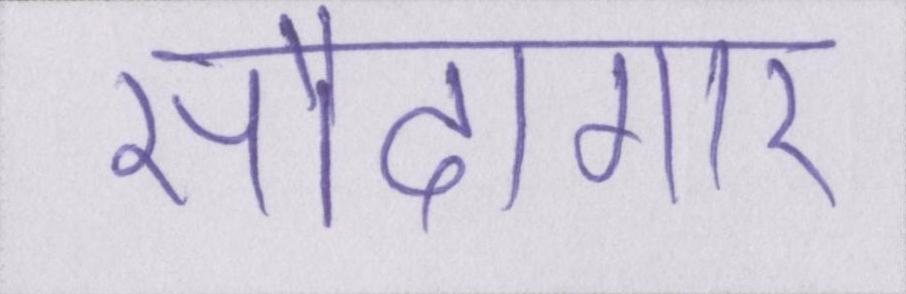 सौदागार